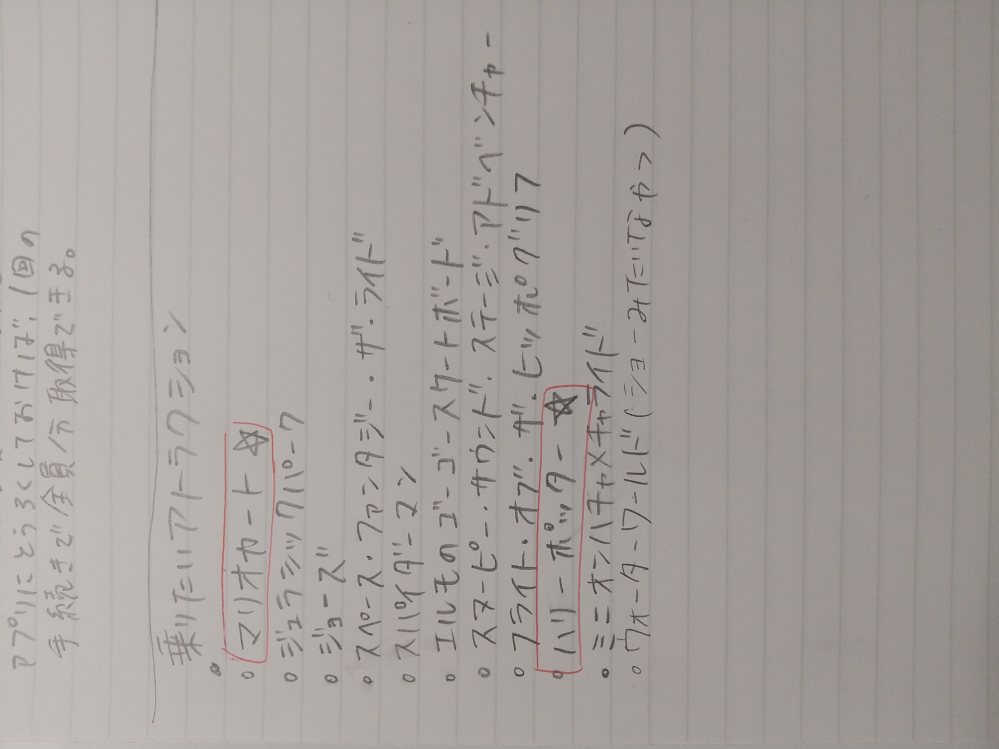 アプリにとうろくしておけば、1回の
手続きで全員分取得できる。
乗りたいアトラクション
。
。マリオカート☆
。ジュラシックパーク
。ジョーズ
。スペース・ファンタジー・ザ・ライド
。スパイダーマン
。エルモのゴーゴースケートボード
。スヌーピー・サウンド・ステージ・アドベンチャー
。フライト・オブ・ザ・ヒッポグリフ
。ハリーポッター☆
。ミニオンハチャメチャライド
。ウォーターワールド(ショーみたいなやつ)